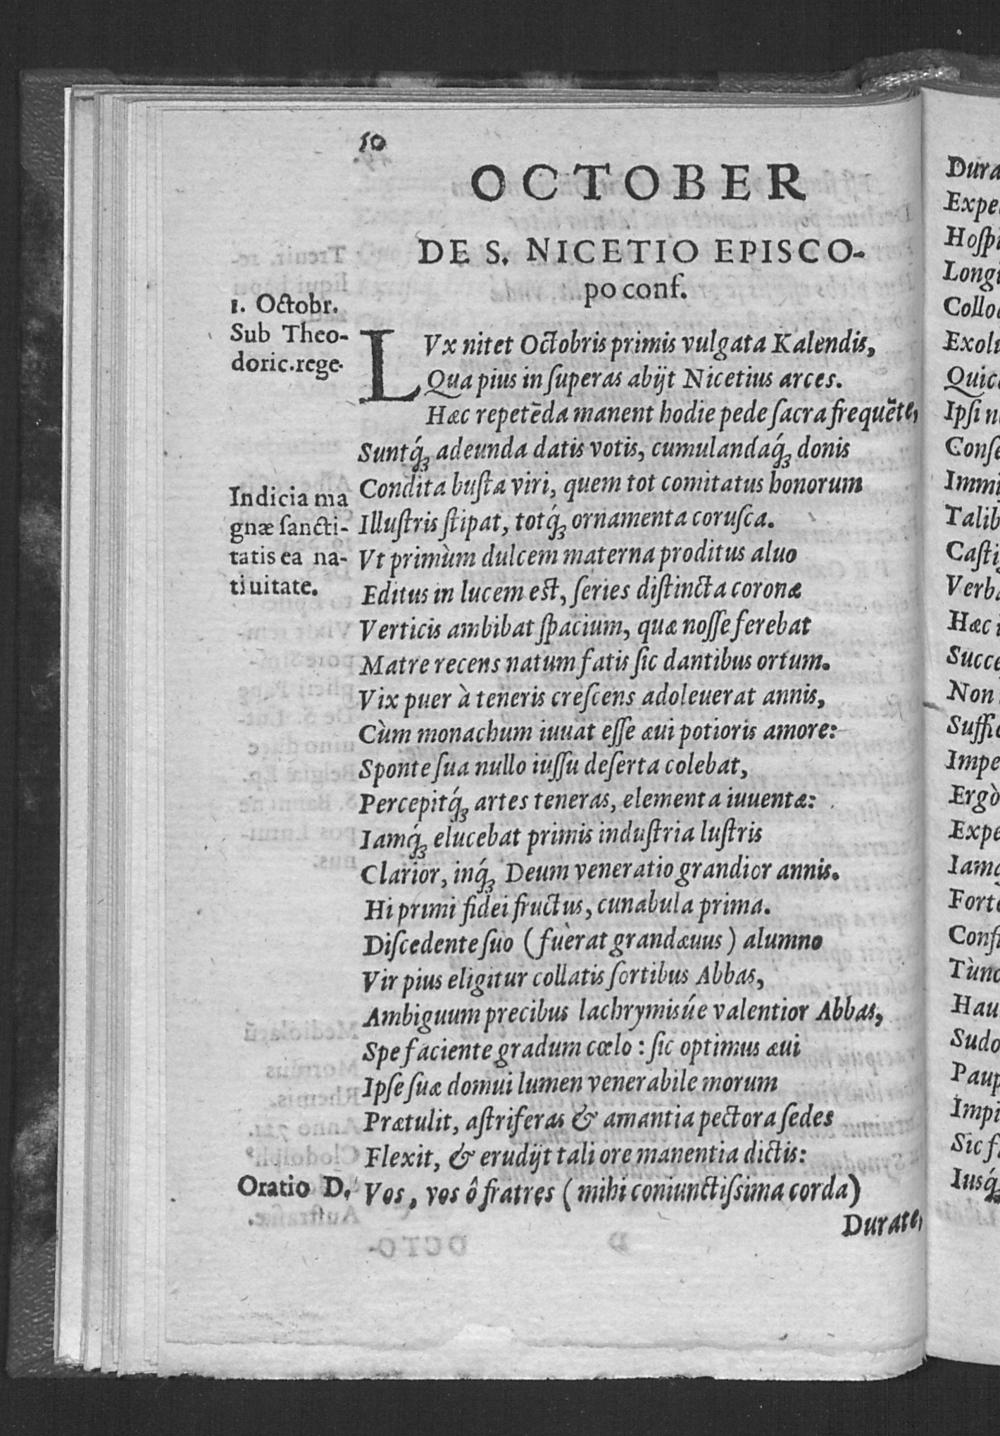 50
OCTOBER
DE S. NICETIO EPISCO-
po conf.
1. Octobr.
Sub Theo-
doric.rege.
LVx nitet Octobris primis vulgata Kalendis,
Qua pius in ſuperas abijt Nicetius arces.
Hæc repetēda manent hodie pede ſacra frequēte,
Suntq́ꝫ adeunda datis votis, cumulandaq́ꝫ donis
Indicia ma
gnæ ſancti-
tatis ea na-
tiuitate.
Condita buſta viri, quem tot comitatus honorum
Illuſtris ſtipat, totq́ꝫ ornamenta coruſca.
Vt primùm dulcem materna proditus aluo
Editus in lucem eſt, ſeries diſtincta coronæ
Verticis ambibat ſpacium, quæ noſſe ferebat
Matre recens natum fatis ſic dantibus ortum.
Vix puer à teneris creſcens adoleuerat annis,
Cùm monachum iuuat eſſe æui potioris amore:
Sponte ſua nullo iuſſu deſerta colebat,
Percepitq́ꝫ artes teneras, elementa iuuentæ:
Iamq́ꝫ elucebat primis induſtria luſtris
Clarior, inq́ꝫ Deum veneratio grandior annis.
Hi primi fidei fructus, cunabula prima.
Diſcedente ſuo (fuerat grandæuus) alumno
Vir pius eligitur collatis ſortibus Abbas,
Ambiguum precibus lachrymisúe valentior Abbas,
Spe faciente gradum cœlo: ſic optimus æui
Ipſe ſuæ domui lumen venerabile morum
Prætulit, aſtriferas & amantia pectora ſedes
Flexit, & erudijt tali ore manentia dictis:
Oratio D.
Vos, vos ô fratres (mihi coniunctiſsima corda)
Durate,
Dura
Expe
Hoſpi
Longi
Collo
Exolu
Quic
Ipſi n
Conſe
Immi
Talib
Caſti
Verba
Hæc
Succe
Non
Suffic
Impe
Ergò
Expe
Iamq
Forte
Conſi
Tùnc
Hau
Sudo
Paup
Impi
Sic f
Iusq́ꝫ